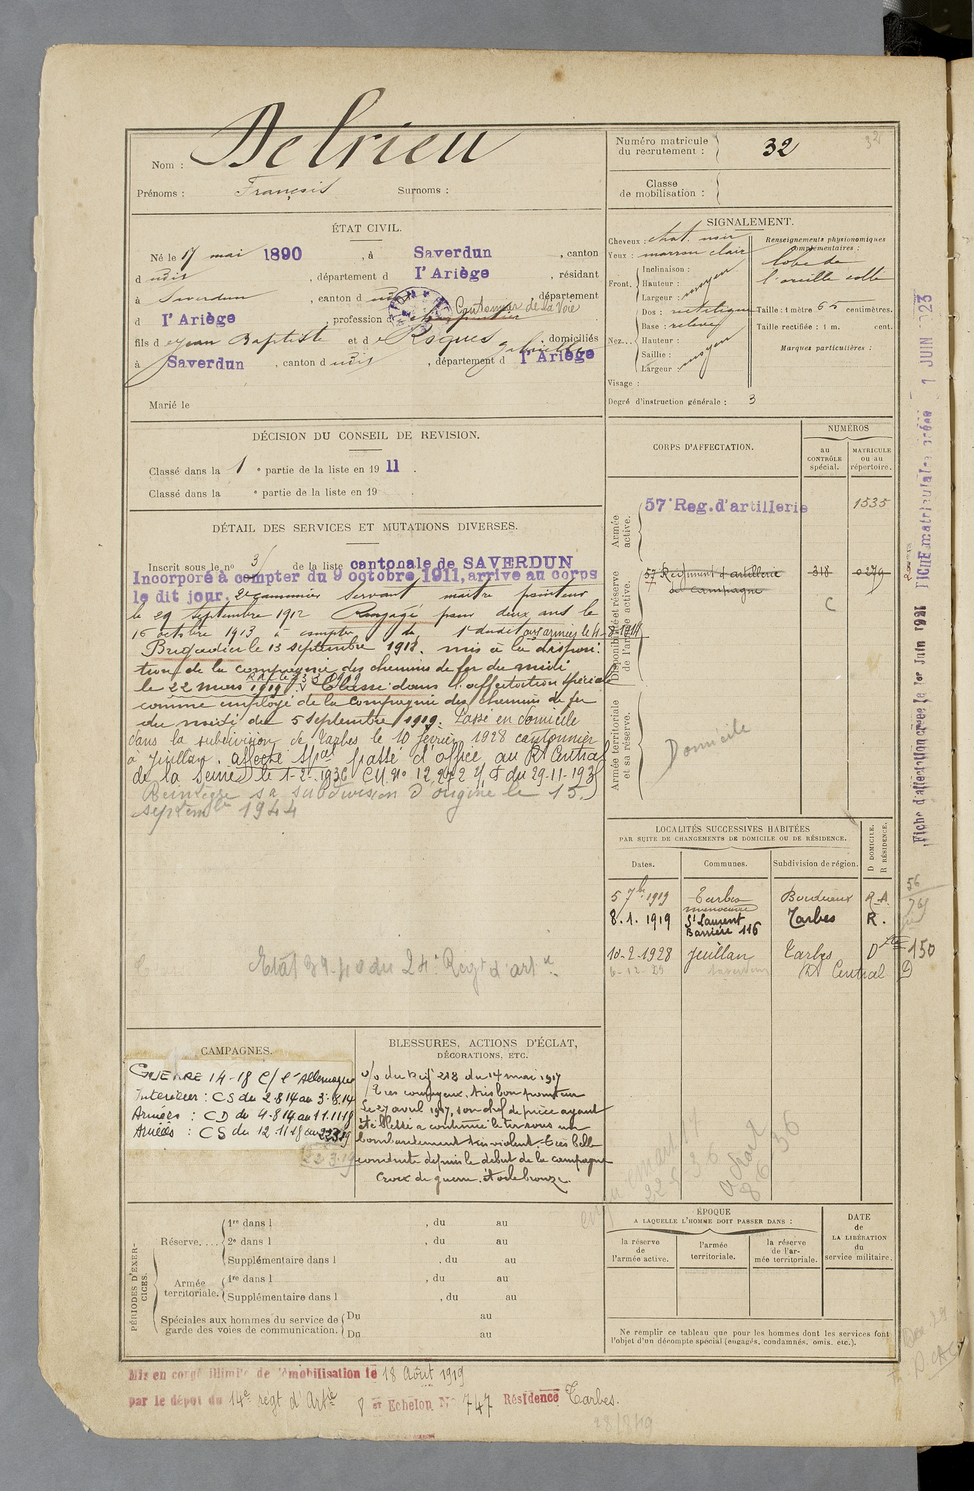 Nom : Delrieu
Prénoms : François Surnoms :
Numéro matricule du recrutement : 32
32
Classe de mobilisation :
ÉTAT CIVIL.
Né le 17 mai 1890, à Saverdun, canton
d udis, département d l'Ariège, résidant
à Saverdun, canton d udis, département
d l'Ariège, profession d charpentier Cantonnier de la Voie
fils d e Jean Baptiste et d e Roques Gabrielle, domiciliés
à Saverdun, canton d udis, département d l'Ariège
Marié le
SIGNALEMENT.
Cheveux : chat. noir
Yeux : marron clair
Front. Inclinaison :
Hauteur : moyen
Largeur :
Nez... Dos : rectiligne
Base : relevé
Hauteur :
Saillie : moyen
Largeur :
Visage :
Degré d'instruction générale : 3
Renseignements physionomiques complémentaires :
lobe de
l'oreille collé
Taille : 1 mètre 65 centimètres.
Taille rectifiée : 1 m. cent.
Marques particulières :
DÉCISION DU CONSEIL DE REVISION.
Classé dans la 1 e partie de la liste en 1911.
Classé dans la e partie de la liste en 19 .
DÉTAIL DES SERVICES ET MUTATIONS DIVERSES.
Inscrit sous le n° 31 de la liste cantonale de SAVERDUN
Incorporé à compter du 9 octobre 1911, arrivé au corps
le dit jour, 2e cannonier servant maître pointeur
le 29 septembre 1912 Rengagé pour deux ans le
16 octobre 1913 à compter du 1er dudit aux armées le 4-8-1914
Brigadier le 13 septembre 1918. mis à la disposi-
tion de la compagnie des chemins de fer du midi
le 22 mars 1919. Classé dans l'affectation spéciale
comme employé de la Compagnie des chemins de fer
du midi du 5 septembre 1919. Passé en domicile
dans la subdivision de Tarbes le 10 février 1928 cantonnier
à Juillan. affecté spal passé d'office au Rt Central
de la Seine le 1-2-1936 CM n° 12,242 du 29-11-193
Réintègre sa subdivision d'origine le 15
septembre 1944
Etat du 24e Regt d'artie
CORPS D'AFFECTATION.
NUMÉROS
au CONTRÔLE spécial.
MATRICULE ou au répertoire.
Armée active.
57e Reg. d'artillerie 1535
Disponibilité et réserve de l'armée active.
57 Régiment d'artillerie de campagne 318 0279
C
Armée territoriale et sa réserve.
Domicile
LOCALITÉS SUCCESSIVES HABITÉES
PAR SUITE DE CHANGEMENTS DE DOMICILE OU DE RÉSIDENCE.
Dates. Communes. Subdivision de région. D DOMICILE. R RÉSIDENCE.
5 7bre 1919 Tarbes Bordeaux R-A
8.1.1919 St Laurent Barrière 116 Tarbes R.
10-2-1928 Juillan Tarbes D
Rt Central D
150
CAMPAGNES.
GUERRE 14-18 C/ l'Allemagne
Intérieur : CS du 2 8 14 au 3-8.14
Armées : CD du 4-8 14 au 11.11.18
Armées : CS du 12 11 18 au 22.3.19
22.3.19
BLESSURES, ACTIONS D'ÉCLAT,
DÉCORATIONS, ETC.
o/o du Régt 218 du 14 mai 1917
Très courageux. très bon pointeur
Le 27 avril 1917, son chef de pièce ayant
été blessé a continué le tir sous un
bombardement très violent. Très belle
conduite depuis le début de la campagne
Croix de guerre. étoile bronze.
PÉRIODES D'EXERCICES.
Réserve....
1re dans l , du au
2e dans l , du au
Supplémentaire dans l , du au
Armée territoriale.
1re dans l , du au
Supplémentaire dans l , du au
Spéciales aux hommes du service de garde des voies de communication.
Du au
Du au
ÉPOQUE
A LAQUELLE L'HOMME DOIT PASSER DANS :
la réserve de l'armée active.
l'armée territoriale.
la réserve de l'armée territoriale.
DATE de LA LIBÉRATION du service militaire.
Ne remplir ce tableau que pour les hommes dont les services font
l'objet d'un décompte spécial (engagés, condamnés, omis, etc.).
Mis en congé illimité de démobilisation le 18 Août 1919
par le dépôt du 14e régt d'Artie 8 et Echelon N° 747 Résidence Tarbes.